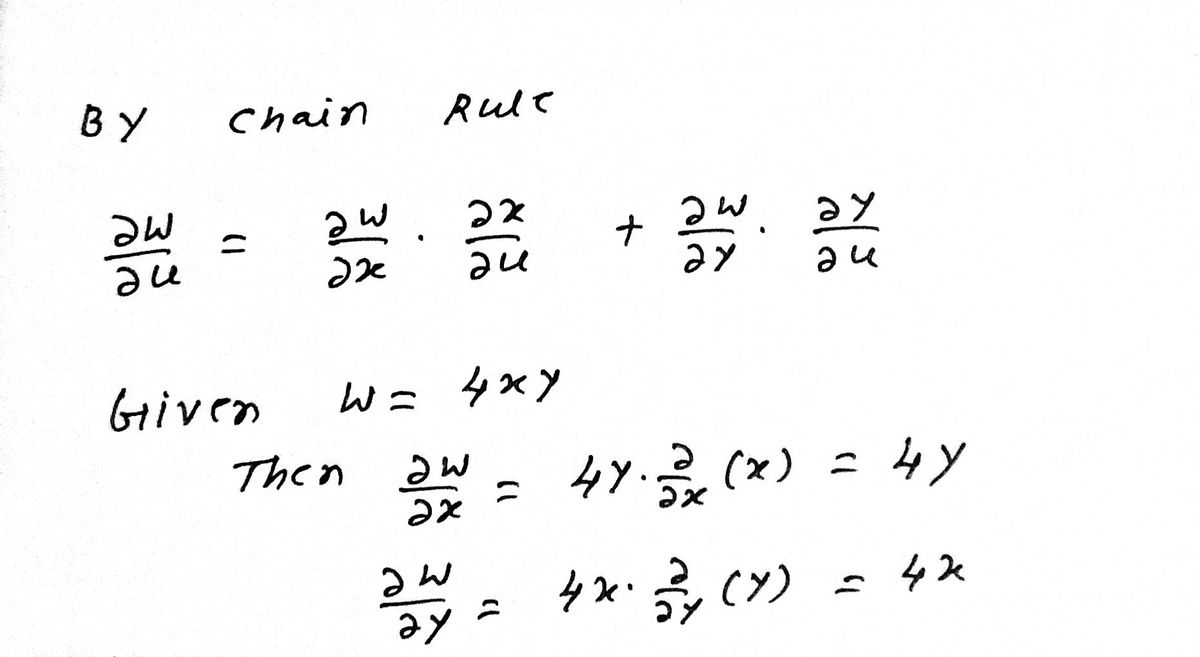 By Chain Rule
∂w/∂u = ∂w/∂x · ∂x/∂u + ∂w/∂y · ∂y/∂u
Given w = 4xy
Then ∂w/∂x = 4y · ∂/∂x (x) = 4y
∂w/∂y = 4x · ∂/∂y (y) = 4x